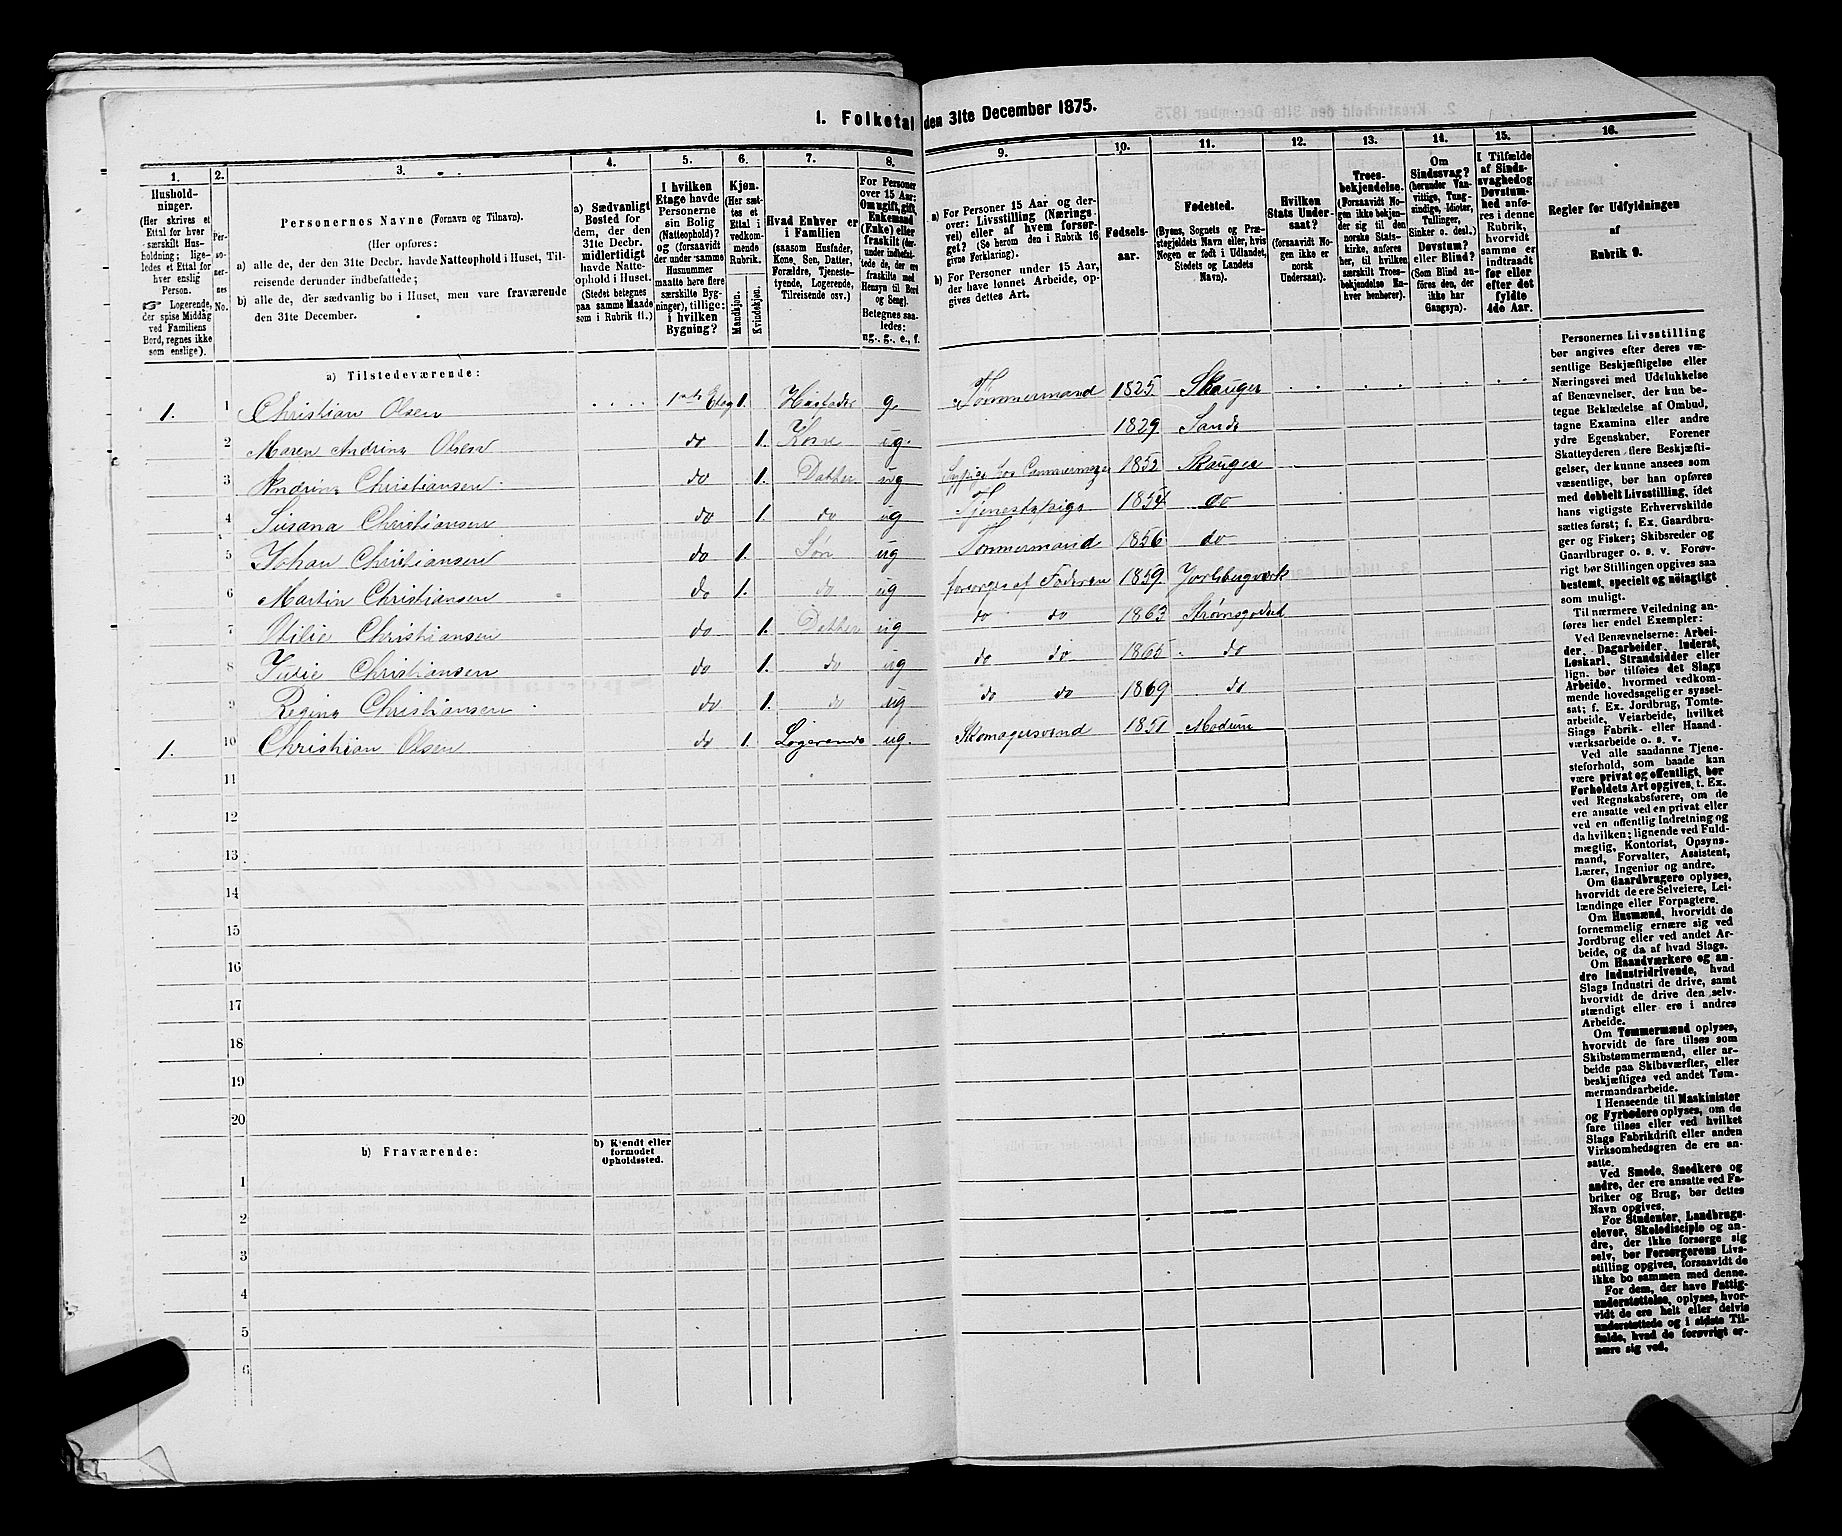 1. Folketal den 31te December 1875.
1. 2. 3. 4. 5. 6. 7. 8. 9. 10. 11. 12. 13. 14. 15. 16.
Husholdninger.
(Her skrives et
Ettal for hver
særskilt Husholdning;
ligeledes et Ettal for
hver enslig
Person.
☞ Logerende,
der spise Middag
ved Familiens
Bord, regnes ikke
som enslige).
Personernes No.
Personernes Navne (Fornavn og Tilnavn).
(Her opføres:
a) alle de, der den 31te Decbr. havde Natteophold i Huset, Tilreisende
derunder indbefattede;
b) alle de, der sædvanlig bo i Huset, men vare fraværende
den 31te December.
a) Sædvanligt
Bosted for
dem, der den
31te Decbr.
midlertidigt
havde Natteophold
i Huset.
(Stedet betegnes
paa samme Maade
som i Rubrik 11.)
I hvilken
Etage havde
Personerne
sin Bolig
(Natteophold)?
og (forsaavidt
der under samme
Husnummer
maatte høre flere
særskilte Bygninger),
tillige:
i hvilken
Bygning?
Kjøn.
(Her sættes
et
Ettal i
vedkommende
Rubrik.
Mandkjøn. Kvindekjøn.
Hvad Enhver er
i Familien
(saasom Husfader,
Kone, Søn, Datter,
Forældre, Tjenestetyende,
Logerende,
Tilreisende osv.)
For Personer
over 15 Aar:
Om ugift, gift,
Enkemand
(Enke) eller
fraskilt (derunder
indbefattede
de, der ere
fraskilte med
Hensyn til Bord
og Seng).
Betegnes saaledes:
ug., g., e., f.
a) For Personer 15 Aar og derover:
Livsstilling (Næringsvei)
eller af hvem forsørget?
(Se herom den i Rubrik 16
givne Forklaring).
b) For Personer under 15 Aar,
der have lønnet Arbeide, opgives
dettes Art.
Fødselsaar.
Fødested.
(Byens, Sognets og Præstegjeldets
Navn eller, hvis
Nogen er født i Udlandet,
Stedets og Landets
Navn).
Hvilken
Stats Undersaat?
(forsaavidt Nogen
ikke er
norsk
Undersaat).
Troesbekjendelse.
(Forsaavidt Nogen
ikke bekjender
sig til den
norske Statskirke,
anføres
her, til hvilken
særskilt Troesbekjendelse
Enhver
henhører).
Om
Sindssvag?
(herunder Vanvittige,
Tungsindige,
Idioter,
Tullinger,
Sinker o. desl.)
Døvstum?
eller Blind?
(Som Blind anføres
den, der
ikke har
Gangsyn).
I Tilfælde
af Sindssvaghed
og
Døvstumhed
anføres
i denne
Rubrik,
hvorvidt
samme er
indtraadt
før eller
efter det
fyldte
4de Aar.
Regler for Udfyldningen
af
Rubrik 9.
a) Tilstedeværende:
1. 1 Christian Olsen 1ste Etag 1. Husfader g. Tømmermand 1825 Skauger
2 Maren Andrina Olsen do 1. Kone ug. 1829 Sande
3 Andrina Christiansen do 1. Datter ug 1852 Skauger
4 Susana Christiansen do 1. do ug Tjenestepige 1854 do
5 Johan Christiansen do 1. Søn ug Tømmermand 1856 do
6 Martin Christiansen do 1. do ug forsørges af Faderen 1859 Jarlsbergværk
7 Otilie Christiansen do 1. Datter ug do do 1863 Strømsgodset
8 Julie Christiansen do 1. do ug do do 1865 do
9 Regina Christiansen do 1. do ug do do 1869 do
1. 10 Christian Olsen do 1. Logerende ug. Skomagersvend 1851 Modum
11
12
13
14
15
16
17
18
19
20
b) Fraværende: b) Kjendt eller
formodet
Opholdssted.
1
2
3
4
5
6
Personernes Livsstilling
bør angives efter deres væsentlige
Beskjæftigelse eller
Næringsvei med Udelukkelse
af Benævnelser, der kun betegne
Beklædelse af Ombud,
tagne Examina eller andre
ydre Egenskaber. Forener
Skatteyderen flere Beskjæftigelser,
der kunne ansees som
væsentlige, bør han opføres
med dobbelt Livsstilling, idet
hans vigtigste Erhvervskilde
sættes først; f. Ex. Gaardbruger
og Fisker; Skibsreder og
Gaardbruger o. s. v. Forøvrigt
bør Stillingen opgives saa
bestemt, specielt og nøiagtigt
som muligt.
Til nærmere Veiledning anføres
her endel Exempler:
Ved Benævnelserne: Arbeider,
Dagarbeider, Inderst,
Løskarl, Strandsidder eller
lign. bør tilføies det Slags
Arbeide, hvormed vedkommende
hovedsagelig er sysselsat;
f. Ex. Jordbrug, Tomtearbeide,
Veiarbeide, hvilket
Slags Fabrik- eller Haandværksarbeide
o. s. v.
Ved alle saadanne Tjenesteforhold,
som baade kan
være privat og offentligt, bør
Forholdets Art opgives, t. Ex.
ved Regnskabsførere, om de
ere ansatte ved en privat eller
ved en offentlig Indretning og
da hvilken; lignende ved Fuldmægtig,
Kontorist, Opsynsmand,
Forvalter, Assistent,
Lærer, Ingeniør og andre.
Om Gaardbrugere oplyses,
hvorvidt de ere Selveiere, Leilændinge
eller Forpagtere.
Om Husmænd, hvorvidt de
fornemmelig ernære sig ved
Jordbrug eller ved andet Arbeide,
og da af hvad Slags.
Om Haandværkere og andre
Industridrivende, hvad
Slags Industri de drive, samt
hvorvidt de drive den selvstændigt
eller ere i andres
Arbeide.
Om Tømmermænd oplyses,
hvorvidt de fare tilsøs som
Skibstømmermænd, eller arbeide
paa Skibsværfter, eller
beskjæftiges ved andet Tømmermandsarbeide.
I Henseende til Maskinister
og Fyrbødere oplyses, om de
fare tilsøs eller ved hvilket
Slags Fabrikdrift eller anden
Virksomhedsgren de ere ansatte.
Ved Smede, Snedkere og
andre, der ere ansatte ved Fabriker
og Brug, bør dettes
Navn opgives.
For Studenter, Landbrugselever,
Skoledisciple og andre,
der ikke forsørge sig
selv, bør Forsørgerens Livsstilling
opgives, forsaavidt de
ikke bo sammen med denne.
For dem, der have Fattigunderstøttelse,
oplyses, hvorvidt
de ere helt eller delvis
understøttede og i sidste Tilfælde,
hvad de forøvrigt ernære
sig ved.